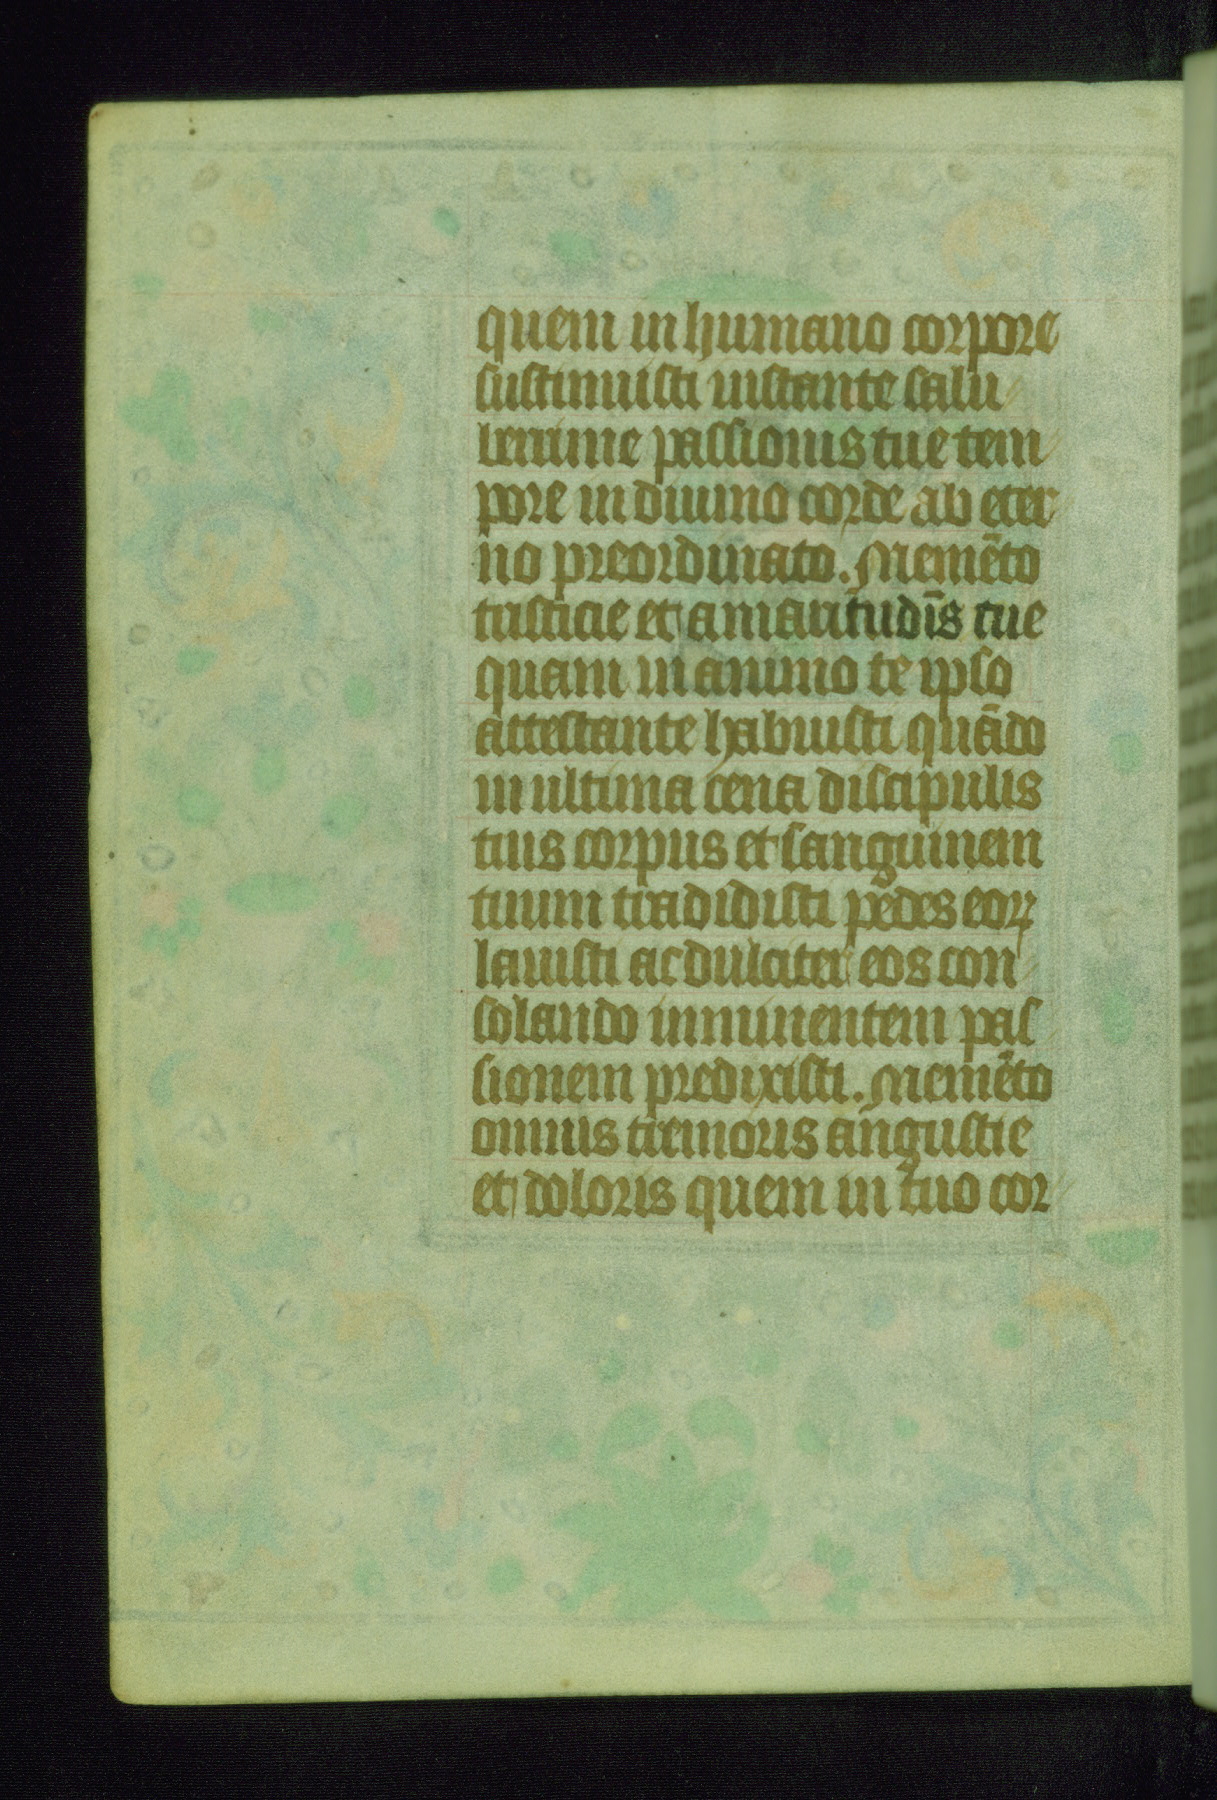 quem in humano corpore
sustinuisti instante salu
berrime passionis tue tem
pore in diuino corde ab eter
no preordinato. Memēto
tristicie et amaritudīs tue
quam in animo te ipso
attestante habuisti quādo
in ultima cena discipulis
tuis corpus et sanguinem
tuum tradidisti pedes eoꝝ
lauisti ac dulciter eos con
solando imminentem pas
sionem predixisti. Memēto
omnis tremoris angustie
et doloris quem in tuo cor